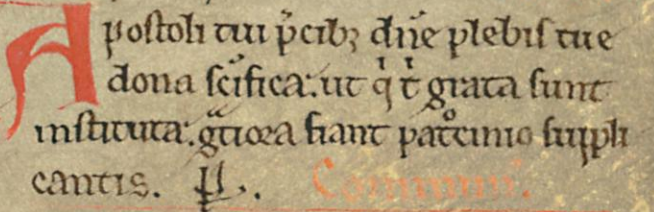 Apostoli tui p̄cibꝫ dn̄e plebis tue
dona sc̄ifica: ut q̍ t̍ grata sunt
instituta: gͣtiora fiant patͦcinio suppli
cantis. p̲.
Commun̄.